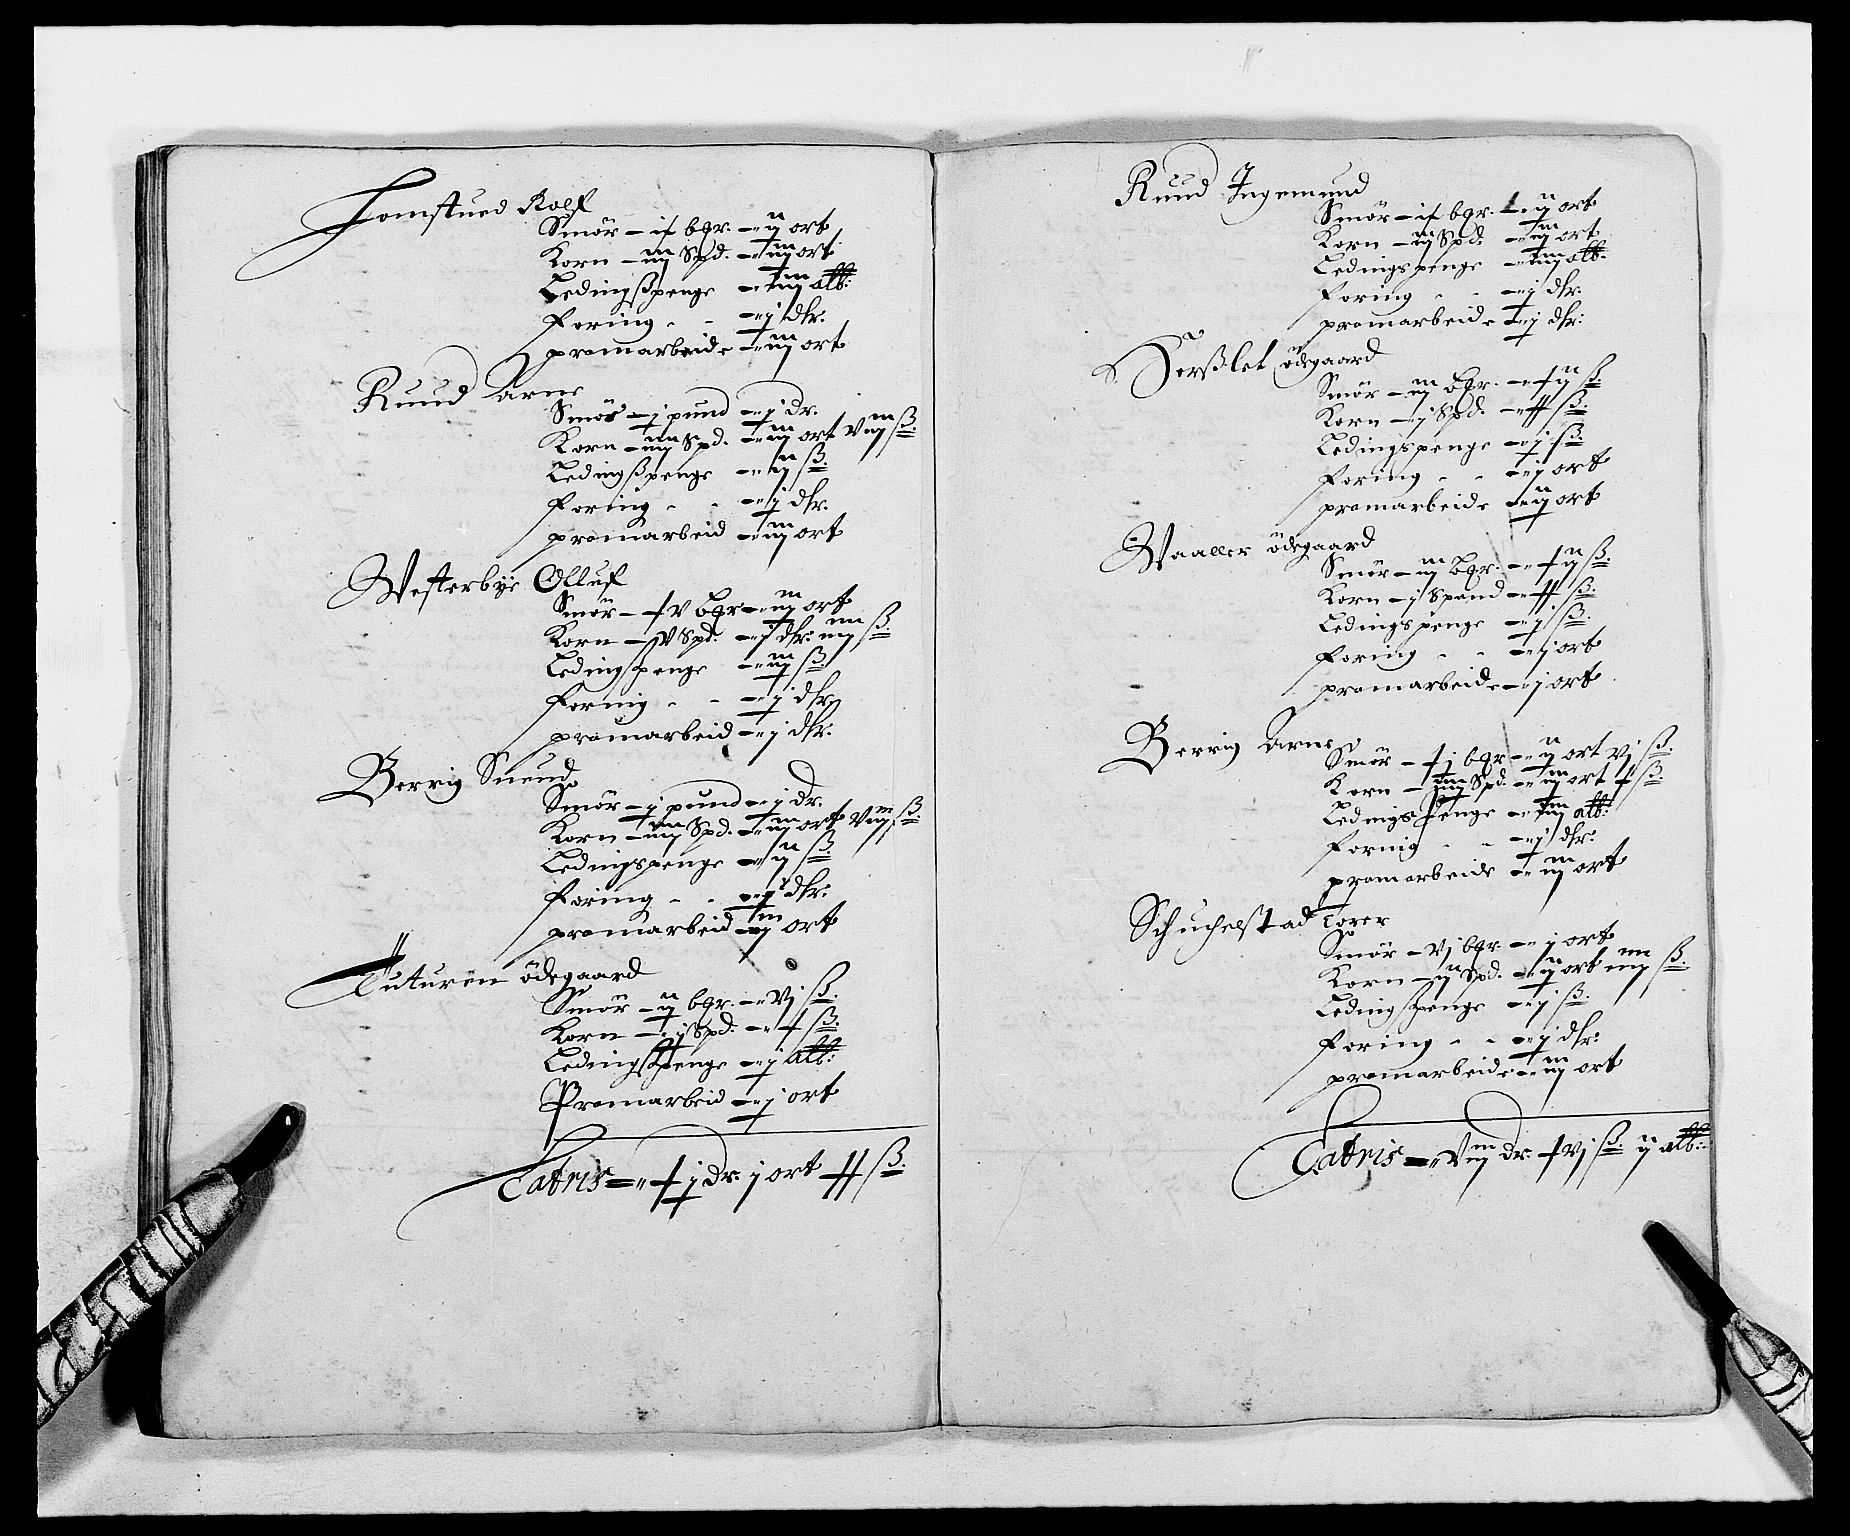 Tomstued Rolf
Smör – if bgr. – ij ort
Korn – iiij Spd. – iij ort
Ledingsspenge – iiij alb:
Foring – j dlr.
promarbeide – iij ort
Ruud Arne
Smör – j pund – j dr.
Korn – iiij Spd. – iij ort viij ß.
Ledingsspenge – ij ß.
Foring – j dlr.
promarbeid – iij ort
Westerbye Olluf
Smör – xv bgr – iij ort
Korn – v Spd. – j dlr. iiij ß.
Ledingspenge – iij ß.
Foring – j dlr
promarbeid – j dlr.
Berrig Suend
Smör – j pund – j dr.
Korn – iiij Spd. – iij ort viij ß.
Ledingspenge – ij ß
Foring – j dlr:
promarbeid – iij ort
ödegaard
Smör – ij bgr. – vj ß.
Korn – j Spd. – x ß.
Ledingspenge – j alb:
Promarbeid – j ort
Latris – xj dr. j ort xx ß.
Ruud Ingemund
Smör – if bgr. – ij ort
Korn – iij Spd. – iij ort
Ledingspenge – iiij alb.
Foring – j dlr.
promarbeide – j dlr:
ödegaard
Smör – iij bgr. – xij ß.
Korn – j Spd. – xx ß.
Ledingspenge – j ß.
Foring – j ort
promarbeide – ij ort
Waaller ödegaard
Smör – iij bgr. – xij ß.
Korn – j Spand – xx ß.
Ledingspenge – j ß.
Foring – j ort
promarbeide – j ort
Berrig Arne
Smör – xj bgr – ij ort vj ß.
Korn – iiij Spd. – iij ort x ß.
Ledingspenge – iiij alb:
Foring – j dlr:
promarbeide – iij ort
Schuchelstad Torer
Smör – vj bgr. – j ort
Korn – ij Spd. – ij ort iiij ß.
Ledingspenge – j ß.
Foring – j dlr:
promarbeide – iij ort
Latris – viij dr. xvj ß. ij alb: